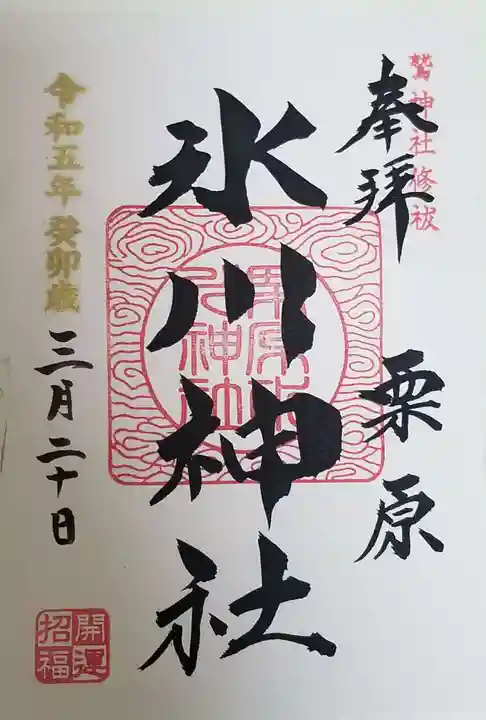 鷲神社修祓
奉拝
栗原
氷川神社
栗原氷川神社
令和五年癸卯歳
三月二十日
開運
招福